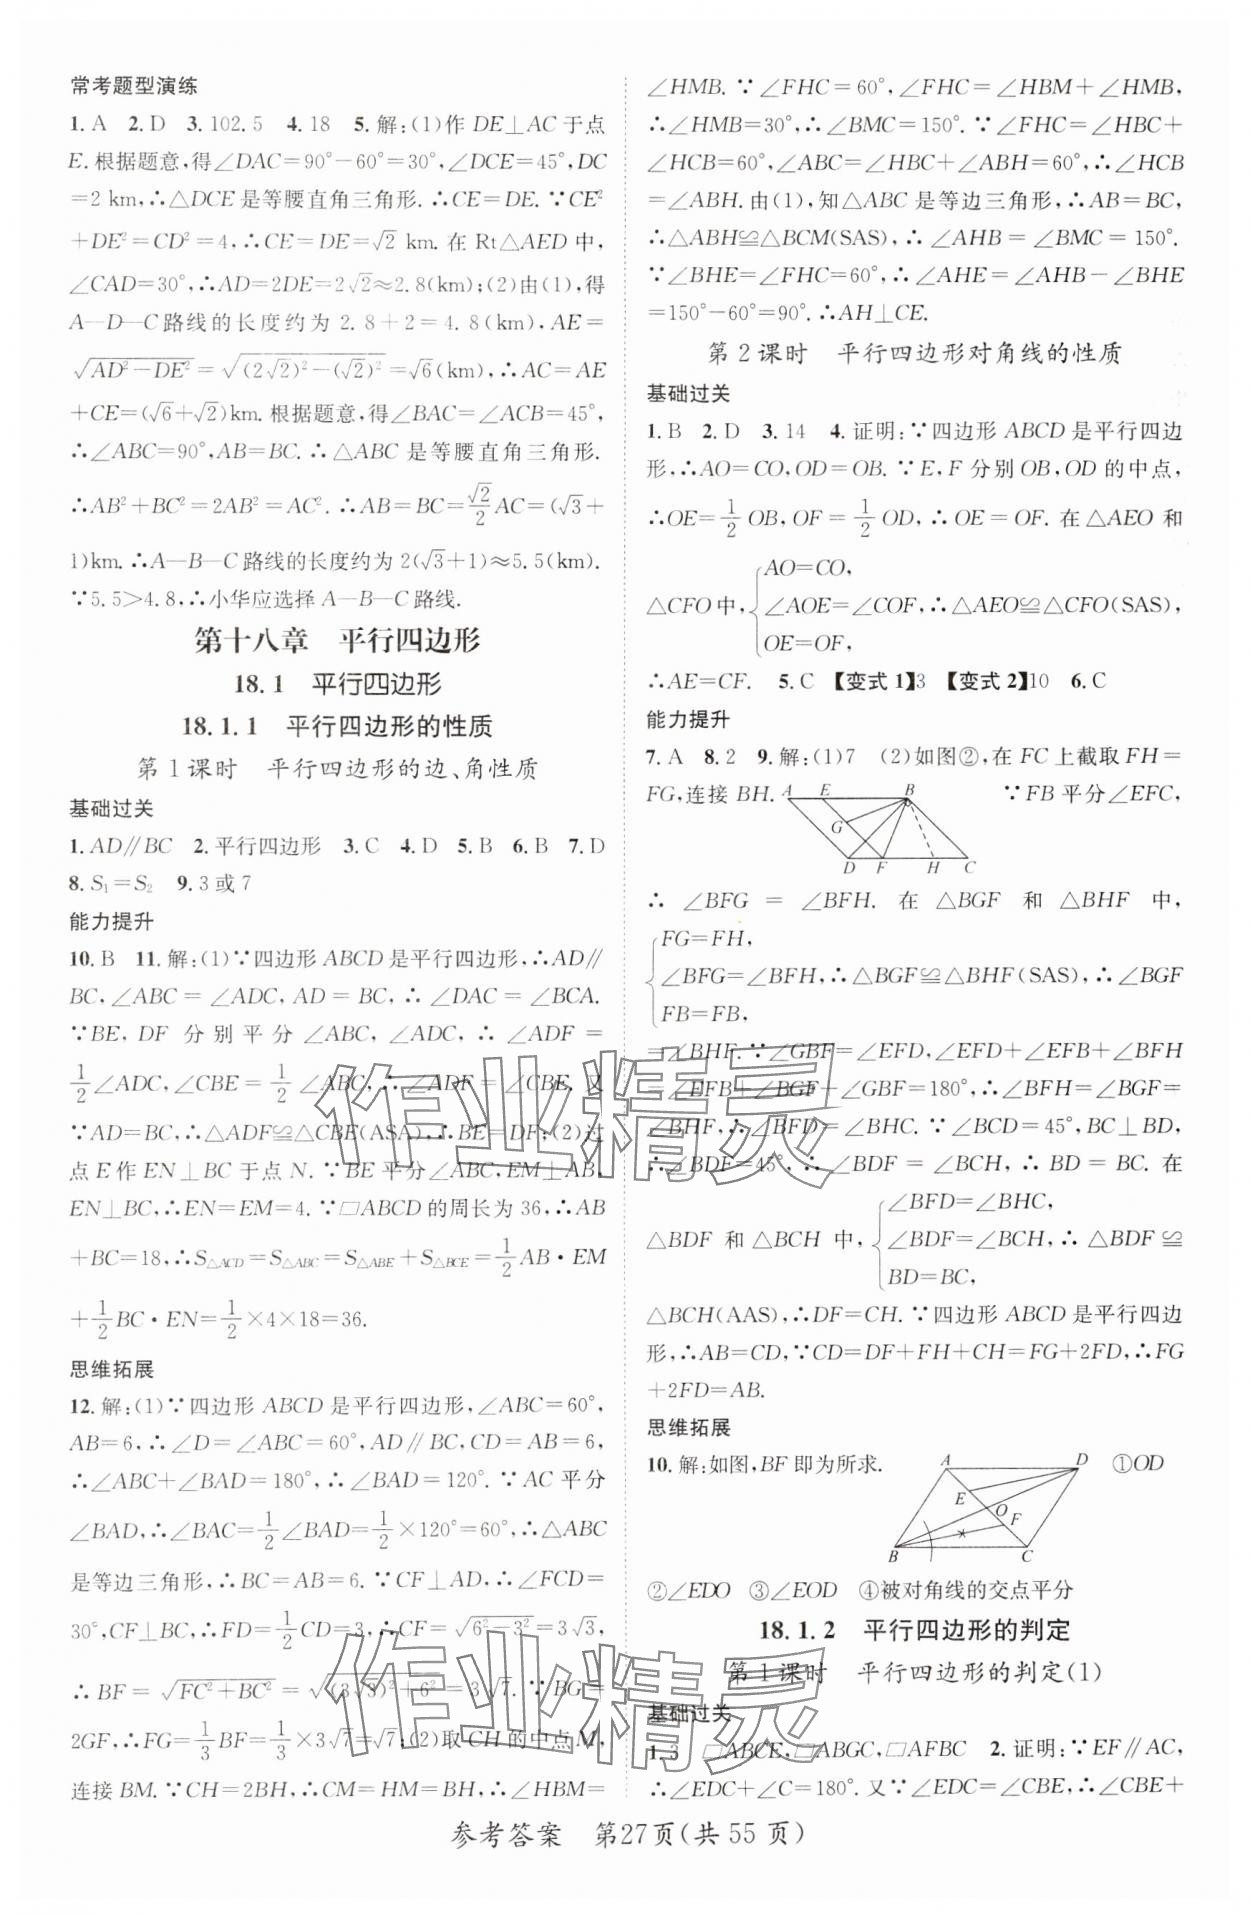 常考题型演练
1. A 2. D 3. 102.5 4. 18 5. 解:(1)作 DE⊥AC 于点
E. 根据题意,得∠DAC=90°-60°=30°,∠DCE=45°,DC
=2 km,∴△DCE 是等腰直角三角形.∴CE=DE.∵CE²
+DE²=CD²=4,∴CE=DE=√2 km. 在 Rt△AED 中,
∠CAD=30°,∴AD=2DE=2√2≈2.8(km);(2)由(1),得
A—D—C 路线的长度约为 2.8+2=4.8(km),AE=
√(AD²-DE²)=√((2√2)²-(√2)²)=√6(km),∴AC=AE
+CE=(√6+√2)km. 根据题意,得∠BAC=∠ACB=45°,
∴∠ABC=90°,AB=BC.∴△ABC 是等腰直角三角形.
∴AB²+BC²=2AB²=AC².∴AB=BC=√2/2 AC=(√3+
1)km.∴A—B—C 路线的长度约为 2(√3+1)≈5.5(km).
∵5.5>4.8,∴小华应选择 A—B—C 路线.
第十八章 平行四边形
18.1 平行四边形
18.1.1 平行四边形的性质
第 1 课时 平行四边形的边、角性质
基础过关
1. AD∥BC 2. 平行四边形 3. C 4. D 5. B 6. B 7. D
8. S₁=S₂ 9. 3 或 7
能力提升
10. B 11. 解:(1)∵四边形 ABCD 是平行四边形,∴AD∥
BC,∠ABC=∠ADC,AD=BC,∴∠DAC=∠BCA.
∵BE,DF 分别平分∠ABC,∠ADC,∴∠ADF=
1/2∠ADC,∠CBE=1/2∠ABC,∴∠ADF=∠CBE. 又
∵AD=BC,∴△ADF≌△CBE(ASA),∴BE=DF;(2)过
点 E 作 EN⊥BC 于点 N.∵BE 平分∠ABC,EM⊥AB,
EN⊥BC,∴EN=EM=4.∵▱ABCD 的周长为 36,∴AB
+BC=18,∴S△ACD=S△ABC=S△ABE+S△BCE=1/2 AB·EM
+1/2 BC·EN=1/2×4×18=36.
思维拓展
12. 解:(1)∵四边形 ABCD 是平行四边形,∠ABC=60°,
AB=6,∴∠D=∠ABC=60°,AD∥BC,CD=AB=6,
∴∠ABC+∠BAD=180°,∴∠BAD=120°.∵AC 平分
∠BAD,∴∠BAC=1/2∠BAD=1/2×120°=60°,∴△ABC
是等边三角形,∴BC=AB=6.∵CF⊥AD,∴∠FCD=
30°,CF⊥BC,∴FD=1/2 CD=3,∴CF=√(6²-3²)=3√3,
∴BF=√(FC²+BC²)=√((3√3)²+6²)=3√7.∵BG=
2GF,∴FG=1/3 BF=1/3×3√7=√7;(2)取 CH 的中点 M,
连接 BM.∵CH=2BH,∴CM=HM=BH,∴∠HBM=
∠HMB.∵∠FHC=60°,∠FHC=∠HBM+∠HMB,
∴∠HMB=30°,∴∠BMC=150°.∵∠FHC=∠HBC+
∠HCB=60°,∠ABC=∠HBC+∠ABH=60°,∴∠HCB
=∠ABH. 由(1),知△ABC 是等边三角形,∴AB=BC,
∴△ABH≌△BCM(SAS),∴∠AHB=∠BMC=150°.
∵∠BHE=∠FHC=60°,∴∠AHE=∠AHB-∠BHE
=150°-60°=90°.∴AH⊥CE.
第 2 课时 平行四边形对角线的性质
基础过关
1. B 2. D 3. 14 4. 证明:∵四边形 ABCD 是平行四边
形,∴AO=CO,OD=OB.∵E,F 分别 OB,OD 的中点,
∴OE=1/2 OB,OF=1/2 OD,∴OE=OF. 在△AEO 和
△CFO 中,{AO=CO,
∠AOE=∠COF,∴△AEO≌△CFO(SAS),
OE=OF,
∴AE=CF. 5. C 【变式 1】3 【变式 2】10 6. C
能力提升
7. A 8. 2 9. 解:(1)7 (2)如图②,在 FC 上截取 FH=
FG,连接 BH. A E B ∵FB 平分∠EFC,
G
D F H C
∴∠BFG=∠BFH. 在△BGF 和△BHF 中,
{FG=FH,
∠BFG=∠BFH,∴△BGF≌△BHF(SAS),∴∠BGF
FB=FB,
=∠BHF.∵∠GBF=∠EFD,∠EFD+∠EFB+∠BFH
=∠EFB+∠BGF+∠GBF=180°,∴∠BFH=∠BGF=
∠BHF,∴∠BFD=∠BHC.∵∠BCD=45°,BC⊥BD,
∴∠BDF=45°,∴∠BDF=∠BCH,∴BD=BC. 在
△BDF 和△BCH 中,{∠BFD=∠BHC,
∠BDF=∠BCH,∴△BDF≌
BD=BC,
△BCH(AAS),∴DF=CH.∵四边形 ABCD 是平行四边
形,∴AB=CD,∵CD=DF+FH+CH=FG+2FD,∴FG
+2FD=AB.
思维拓展
10. 解:如图,BF 即为所求. A D ①OD
E O F
B C
②∠EDO ③∠EOD ④被对角线的交点平分
18.1.2 平行四边形的判定
第 1 课时 平行四边形的判定(1)
基础过关
1. 3 ▱ABCE,▱ABGC,▱AFBC 2. 证明:∵EF∥AC,
∴∠EDC+∠C=180°. 又∵∠EDC=∠CBE,∴∠CBE+
参考答案 第27页(共 55 页)
作业精灵
作业精灵